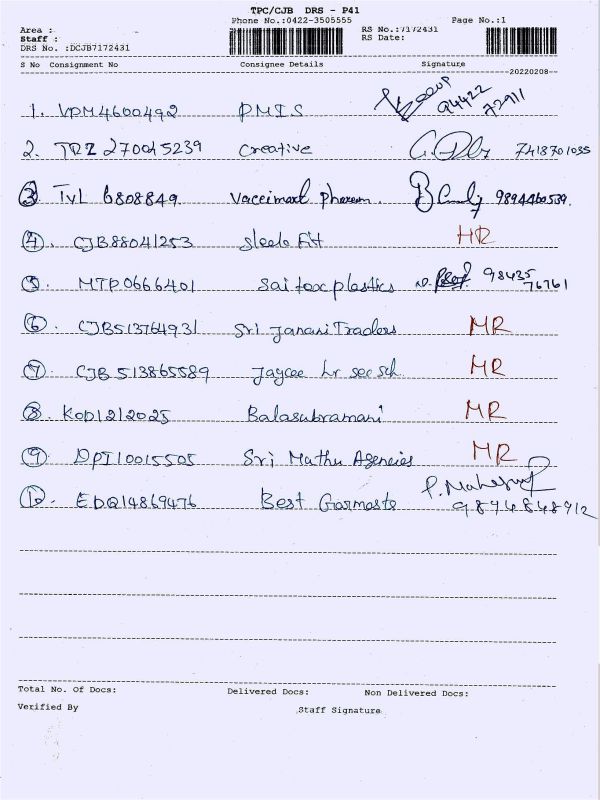 TPC/CJB DRS - P41
Phone No.:0422-3505555 Page No.:1
Area :
RS No.:7172431
Staff :
RS Date:
DRS No. :DCJB7172431
S No Consignment No Consignee Details Signature
20220208
1. VPM4600492 PMIS 94422 72911
2. TRZ 270045239 Creative 7418701035
3 TVL 6808849 9894460539
4. CJB88041253 HR
5. MTP0666401 Sai tex plastics 98435 76761
6. CJB513764931 Sri Janani Traders MR
7. CJB 513865589 Jaycee hr sec sch MR
8. KOD1212025 Balasubramani MR
9. DPI10015505 Sri Mathu Agencies MR
10. EDQ14869476 Best Garments P. Mahesw 9894848912
Total No. Of Docs: Delivered Docs: Non Delivered Docs:
Verified By Staff Signature